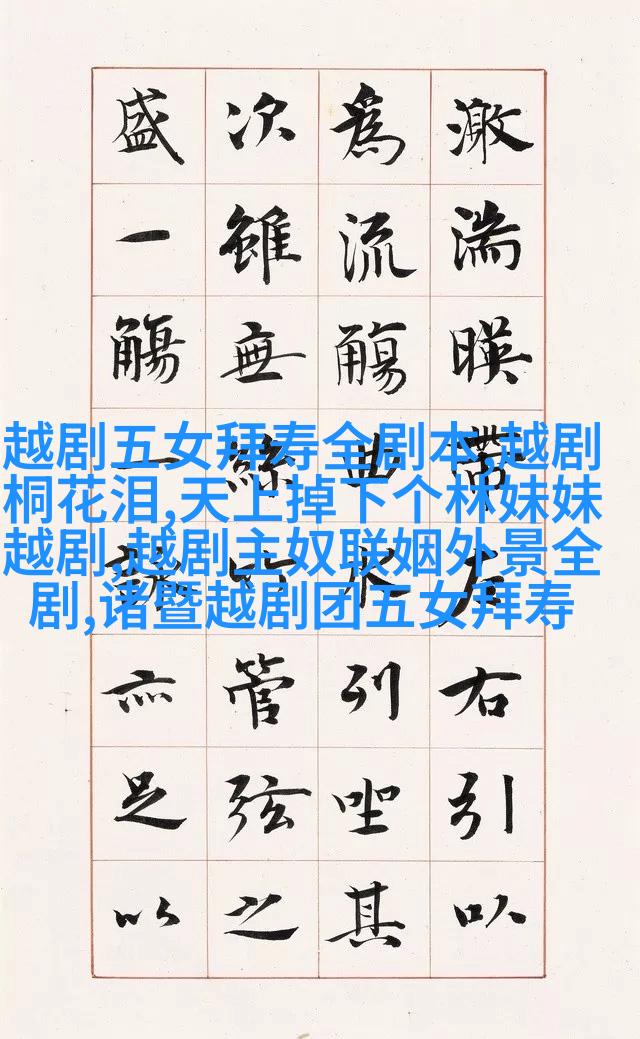 激湍暎帶左右引以
為流觴曲水列坐其
次雖無絲竹管弦之
盛一觴一詠亦足以
越剧五女拜寿全剧本,越剧
桐花泪,天上掉下个林妹妹
越剧,越剧主奴联姻外景全
剧,诸暨越剧团五女拜寿